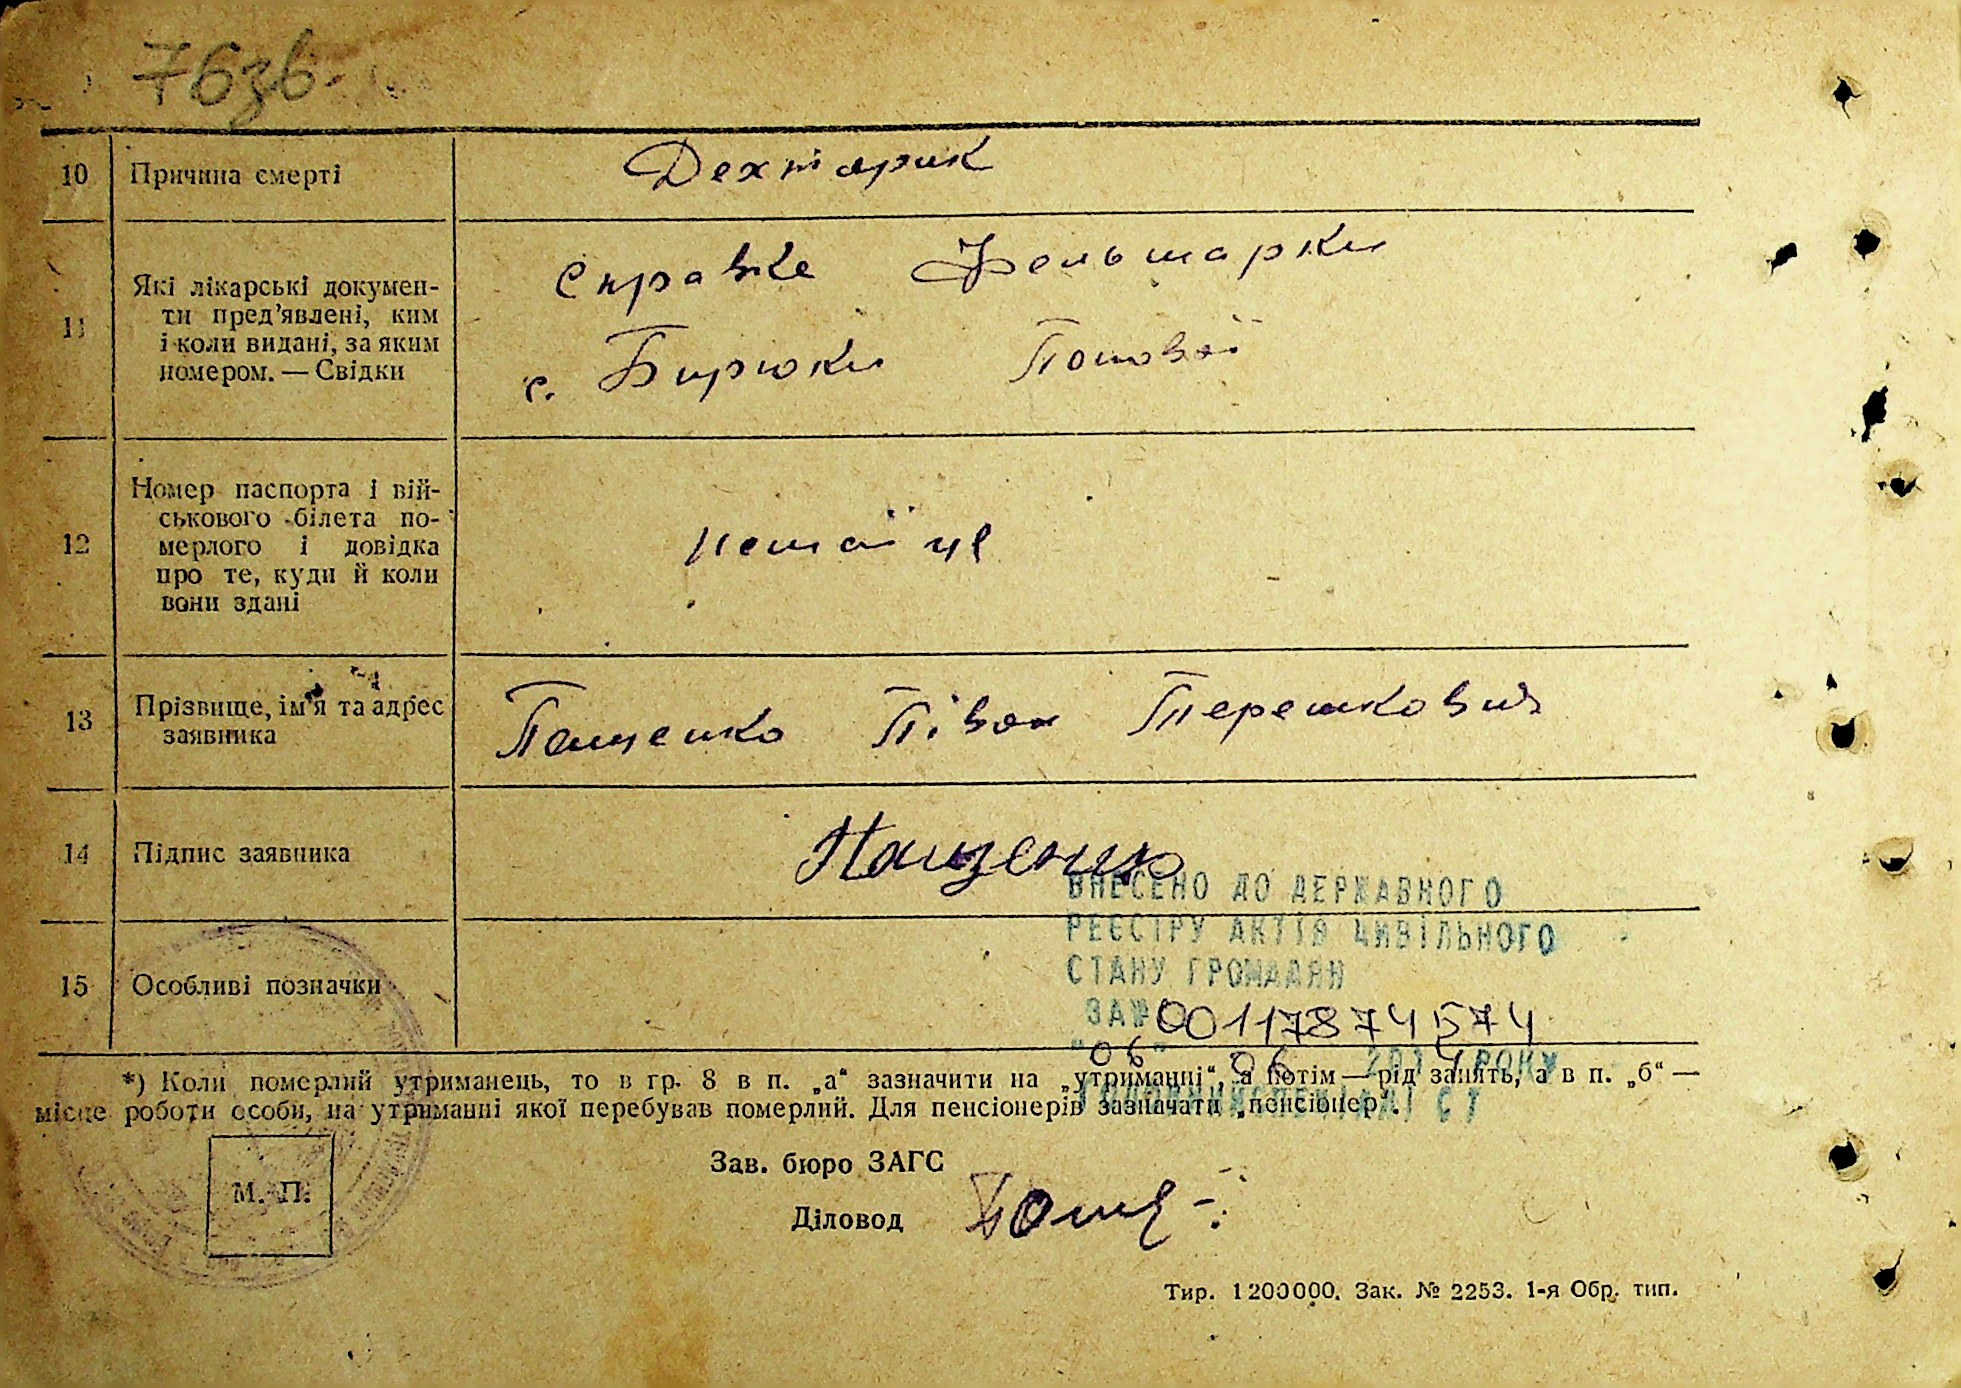 76зв.
10 Причина смерті Дехтарик
11 Які лікарські докумен-
ти пред'явлені, ким
і коли видані, за яким
номером. — Свідки
Справке Фельшарки
с. Бирюки Поповой
12 Номер паспорта і вій-
ськового білета по-
мерлого і довідка
про те, куди й коли
вони здані
13 Прізвище, ім'я та адрес
заявника
Пащенко Півон Терешкович
14 Підпис заявника Пащенко
ВНЕСЕНО ДО ДЕРЖАВНОГО
РЕЄСТРУ АКТІВ ЦИВІЛЬНОГО
СТАНУ ГРОМАДЯН
ЗА № 00117874574
15 Особливі позначки
"06" 06 2014 РОКУ
*) Коли померлий утриманець, то в гр. 8 в п. „а“ зазначити на „утриманні“, а потім — рід занять, а в п. „б“ —
місце роботи особи, на утриманні якої перебував померлий. Для пенсіонерів зазначати „пенсіонер“.
ГОЛОВНИЙ СПЕЦІАЛІСТ
Зав. бюро ЗАГС
М. П.
Діловод
Тир. 1200000. Зак. № 2253. 1-я Обр. тип.